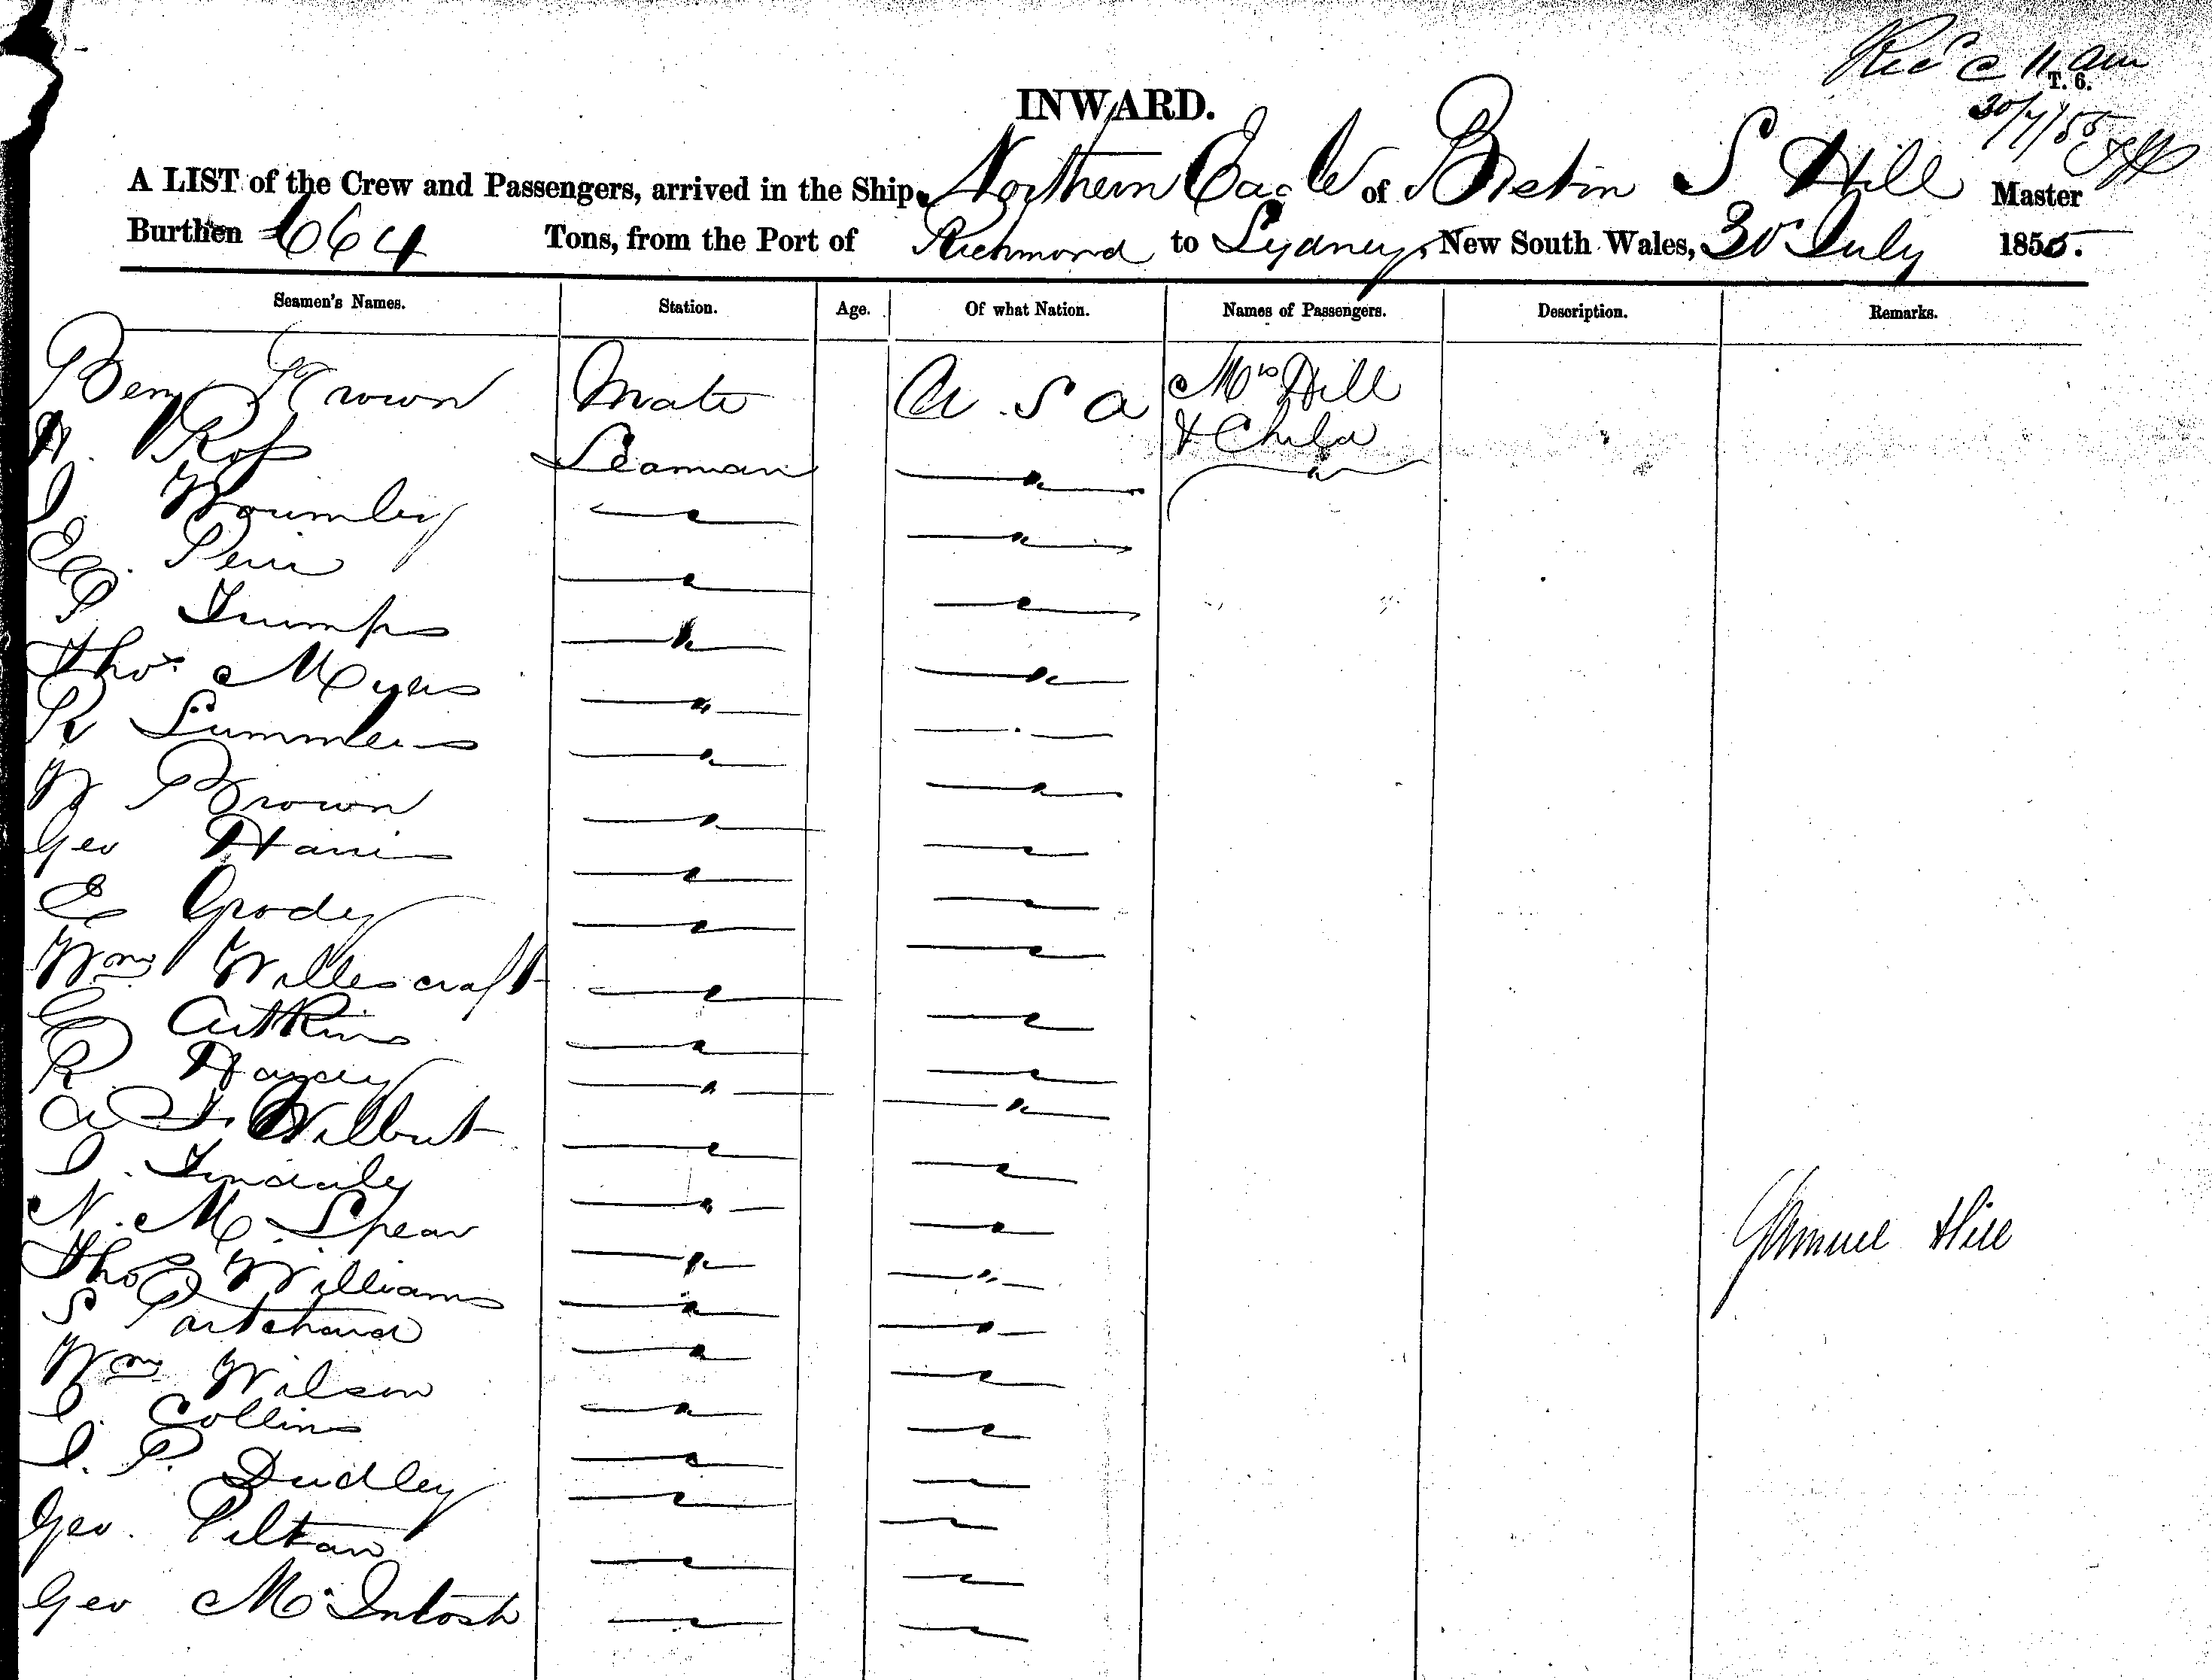 Rec'd 11 am
T. 6.
30/7/55
INWARD.
A LIST of the Crew and Passengers, arrived in the Ship Northern Eagle of Boston S Hill Master
Burthen 664 Tons, from the Port of Richmond to Sydney, New South Wales, 30 July 1855.
Seamen's Names. Station. Age. Of what Nation. Names of Passengers. Description. Remarks.
Benj Brown Mate U.S a Mrs Hill
& Child
H. Ross Seaman
J. Woumley
P. Trumps
Thos Myers
R Summers
W Brown
Geo Harris
E Grody
Wm Willescraft
G Aitkins
R
A Wilbut
J.
N. M. Spear
Thos Williams
S Patchard
Wm Wilson
J. Collins
J. P. Dudley
Samuel Hill
Geo. Peltan
Geo McIntosh